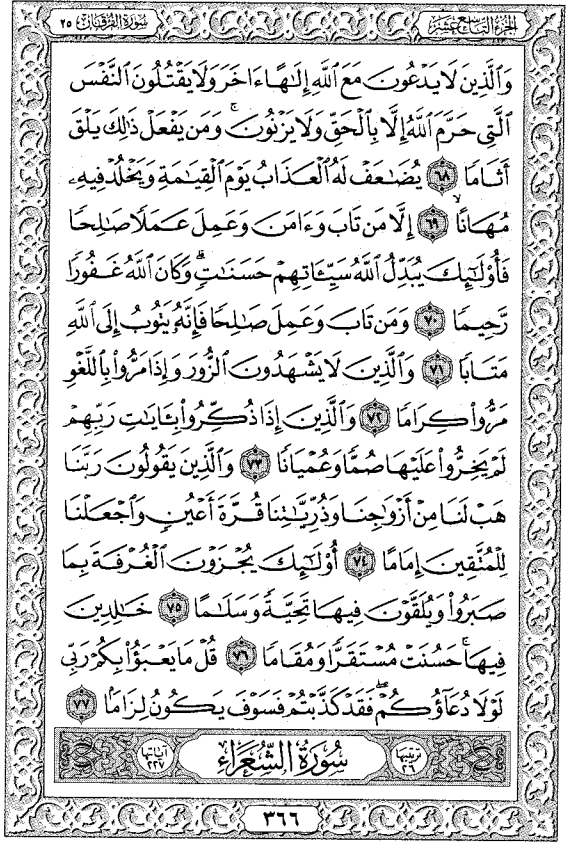 الجزء التاسع عشر
سورة الفرقان ٢٥
وَٱلَّذِينَ لَا يَدْعُونَ مَعَ ٱللَّهِ إِلَٰهًا ءَاخَرَ وَلَا يَقْتُلُونَ ٱلنَّفْسَ
ٱلَّتِي حَرَّمَ ٱللَّهُ إِلَّا بِٱلْحَقِّ وَلَا يَزْنُونَ ۚ وَمَن يَفْعَلْ ذَٰلِكَ يَلْقَ
أَثَامًا ﴿٦٨﴾ يُضَٰعَفْ لَهُ ٱلْعَذَابُ يَوْمَ ٱلْقِيَٰمَةِ وَيَخْلُدْ فِيهِۦ
مُهَانًا ﴿٦٩﴾ إِلَّا مَن تَابَ وَءَامَنَ وَعَمِلَ عَمَلًا صَٰلِحًا
فَأُو۟لَٰٓئِكَ يُبَدِّلُ ٱللَّهُ سَيِّـَٔاتِهِمْ حَسَنَٰتٍ ۗ وَكَانَ ٱللَّهُ غَفُورًا
رَّحِيمًا ﴿٧٠﴾ وَمَن تَابَ وَعَمِلَ صَٰلِحًا فَإِنَّهُۥ يَتُوبُ إِلَى ٱللَّهِ
مَتَابًا ﴿٧١﴾ وَٱلَّذِينَ لَا يَشْهَدُونَ ٱلزُّورَ وَإِذَا مَرُّوا۟ بِٱللَّغْوِ
مَرُّوا۟ كِرَامًا ﴿٧٢﴾ وَٱلَّذِينَ إِذَا ذُكِّرُوا۟ بِـَٔايَٰتِ رَبِّهِمْ
لَمْ يَخِرُّوا۟ عَلَيْهَا صُمًّا وَعُمْيَانًا ﴿٧٣﴾ وَٱلَّذِينَ يَقُولُونَ رَبَّنَا
هَبْ لَنَا مِنْ أَزْوَٰجِنَا وَذُرِّيَّٰتِنَا قُرَّةَ أَعْيُنٍ وَٱجْعَلْنَا
لِلْمُتَّقِينَ إِمَامًا ﴿٧٤﴾ أُو۟لَٰٓئِكَ يُجْزَوْنَ ٱلْغُرْفَةَ بِمَا
صَبَرُوا۟ وَيُلَقَّوْنَ فِيهَا تَحِيَّةً وَسَلَٰمًا ﴿٧٥﴾ خَٰلِدِينَ
فِيهَا ۚ حَسُنَتْ مُسْتَقَرًّا وَمُقَامًا ﴿٧٦﴾ قُلْ مَا يَعْبَؤُا۟ بِكُمْ رَبِّي
لَوْلَا دُعَآؤُكُمْ ۖ فَقَدْ كَذَّبْتُمْ فَسَوْفَ يَكُونُ لِزَامًا ﴿٧٧﴾
ترتيبها ٢٦ سُورَةُ الشُّعَرَاءِ آياتها ٢٢٧
٣٦٦